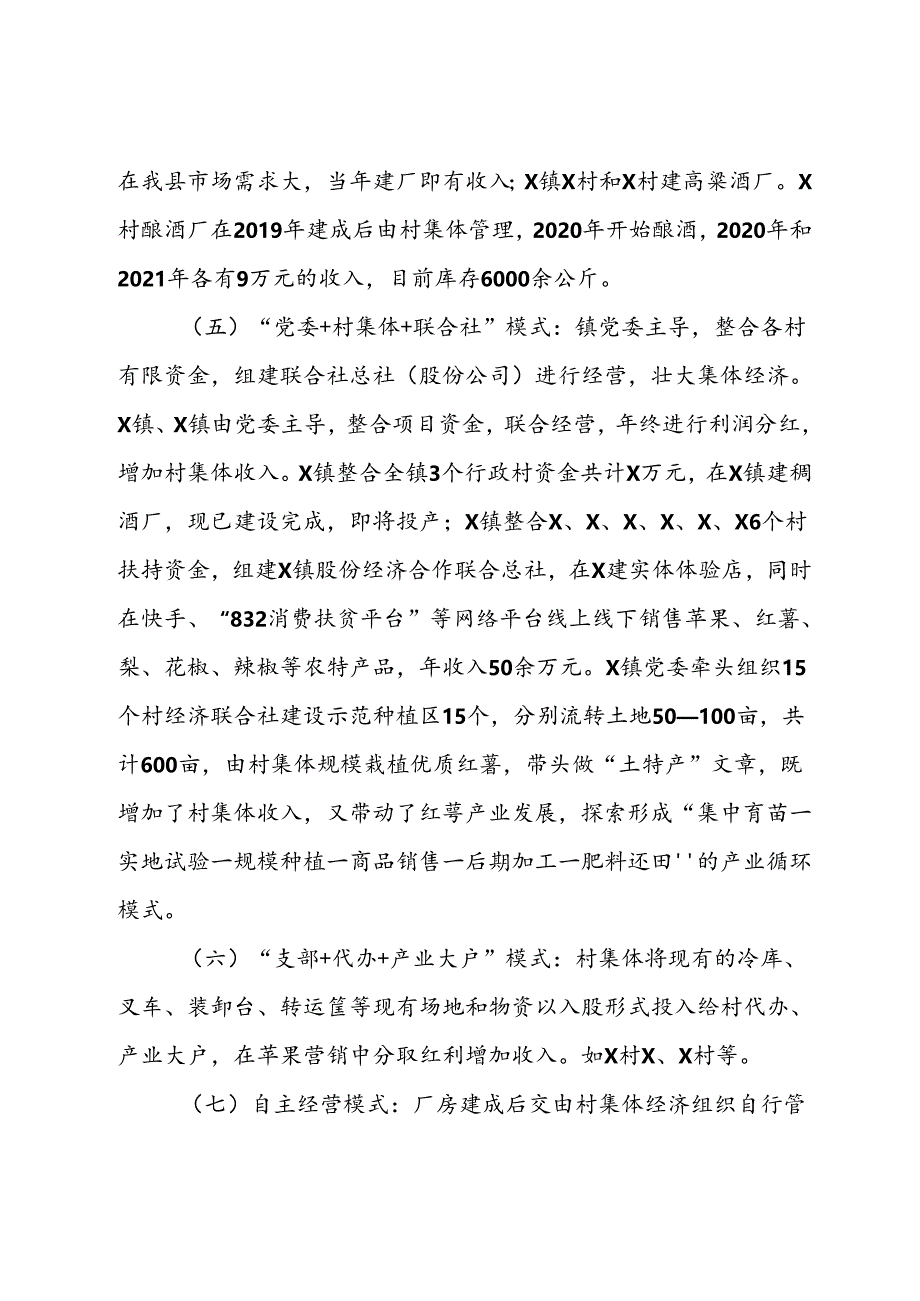 在我县市场需求大，当年建厂即有收入；X镇X村和X村建高粱酒厂。X
村酿酒厂在2019年建成后由村集体管理，2020年开始酿酒，2020年和
2021年各有9万元的收入，目前库存6000余公斤。
（五）“党委+村集体+联合社”模式：镇党委主导，整合各村
有限资金，组建联合社总社（股份公司）进行经营，壮大集体经济。
X镇、X镇由党委主导，整合项目资金，联合经营，年终进行利润分红，
增加村集体收入。X镇整合全镇3个行政村资金共计X万元，在X镇建稠
酒厂，现已建设完成，即将投产；X镇整合X、X、X、X、X、X6个村
扶持资金，组建X镇股份经济合作联合总社，在X建实体体验店，同时
在快手、“832消费扶贫平台”等网络平台线上线下销售苹果、红薯、
梨、花椒、辣椒等农特产品，年收入50余万元。X镇党委牵头组织15
个村经济联合社建设示范种植区15个，分别流转土地50—100亩，共
计600亩，由村集体规模栽植优质红薯，带头做“土特产”文章，既
增加了村集体收入，又带动了红萼产业发展，探索形成“集中育苗一
实地试验一规模种植一商品销售一后期加工一肥料还田''的产业循环
模式。
（六）“支部+代办+产业大户”模式：村集体将现有的冷库、
叉车、装卸台、转运筐等现有场地和物资以入股形式投入给村代办、
产业大户，在苹果营销中分取红利增加收入。如X村X、X村等。
（七）自主经营模式：厂房建成后交由村集体经济组织自行管